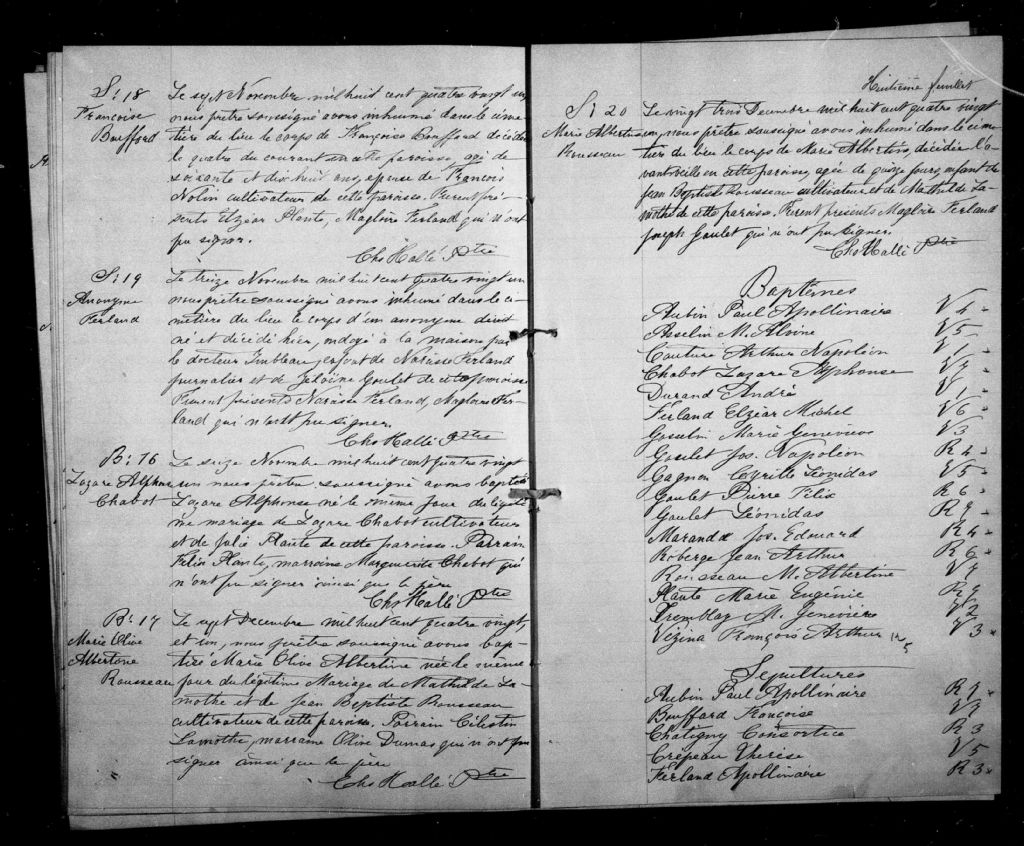 S: 18
Françoise
Bouffard
Le sept Novembre mil huit cent quatre vingt un
nous prêtre soussigné avons inhumé dans le cime
tière du lieu le corps de Françoise Bouffard décédée
le quatre du courant en cette paroisse, agé de
soixante et dix huit ans, epouse de François
Nolin cultivateur de cette paroisse. Furent pré
sents Elzéar Plante, Magloire Ferland qui n'ont
pu signer.
Chs Hallé Ptre
S: 19
Anonyme
Ferland
Le treize Novembre mil huit cent quatre vingt un
nous prêtre soussigné avons inhumé dans le ci
metière du lieu le corps d'un anonyme
né et décédé hier, ondoyé à la maison par
le docteur Imbleau, enfant de Narcisse Ferland
journalier et de Goulet de cette paroisse
Furent présents Narcisse Ferland, Magloire Fer-
land qui n'ont pu signer.
Chs Hallé Ptre
B: 16
Lazare Alphonse
Chabot
Le seize Novembre mil huit cent quatre vingt
un nous prêtre soussigné avons baptisé
Lazare Alphonse né le même jour du légiti
me mariage de Lazare Chabot cultivateur
et de Julie Plante de cette paroisse. Parrain
Félix Plante, marraine Marguerite Chabot qui
n'ont pu signer ainsi que le père
Chs Hallé Ptre
B: 17
Marie Olive
Albertine
Rousseau
Le sept Decembre mil huit cent quatre vingt,
et un, nous prêtre soussigné avons bap
tisé Marie Olive Albertine née le même
jour du légitime Mariage de Mathilde La
mothe et de Jean Baptiste Rousseau
cultivateur de cette paroisse. Parrain Célestin
Lamothe, marraine Olive Dumas qui n'ont pu
signer ainsi que le père
Chs Hallé Ptre
Huitième feuillet
S: 20
Marie Albertine
Rousseau
Le vingt trois Decembre mil huit cent quatre vingt
un, nous prêtre soussigné avons inhumé dans le cime
tière du lieu le corps de Marie Albertine, décédée l'a
vant veille en cette paroisse, agée de quinze jours, enfant de
Jean Baptiste Rousseau cultivateur et de Mathilde La-
mothe de cette paroisse. Furent présents Magloire Ferland
Joseph Goulet qui n'ont pu signer.
Chs Hallé Ptre
Baptêmes
Aubin Paul Apollinaire V 4
Asselin M. Alvine V 5
Couture Arthur Napoléon V 1
Chabot Lazare Alphonse V 7
Durand André V 1
Ferland Elzéar Michel V 6
Gosselin Marie Geneviève V 3
Goulet Jos. Napoléon R 4
Gagnon Cyrille Léonidas V 5
Goulet Pierre Félix R 6
Goulet Léonidas R 7
Maranda Jos. Edouard R 4
Roberge Jean Arthur R 6
Rousseau M. Albertine V 7
Plante Marie Eugénie R 7
Tremblay M. Geneviève V 2
Vézina François Arthur V 3
Sepultures
Aubin Paul Apollinaire R 7
Bouffard Françoise V 7
Chatigny Consortice R 3
Crépeau Thérèse V 5
Ferland Apollinaire R 3